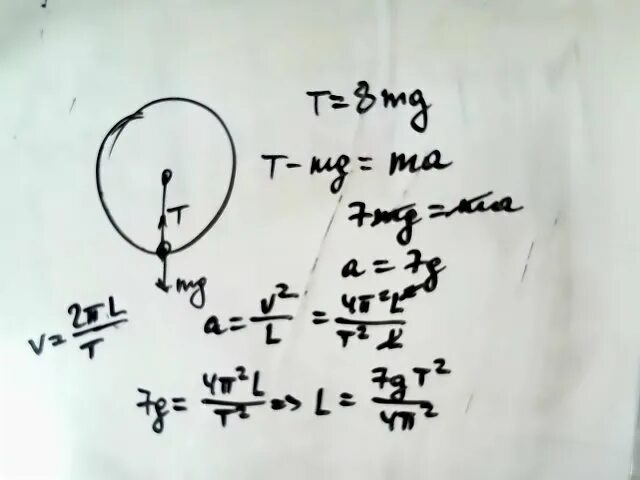 T = 8mg
T - mg = ma
7mg = ma
a = 7g
T
mg
v = 2πL/T
a = v²/L = 4π²L²/T²L
7g = 4π²L/T² => L = 7gT²/4π²